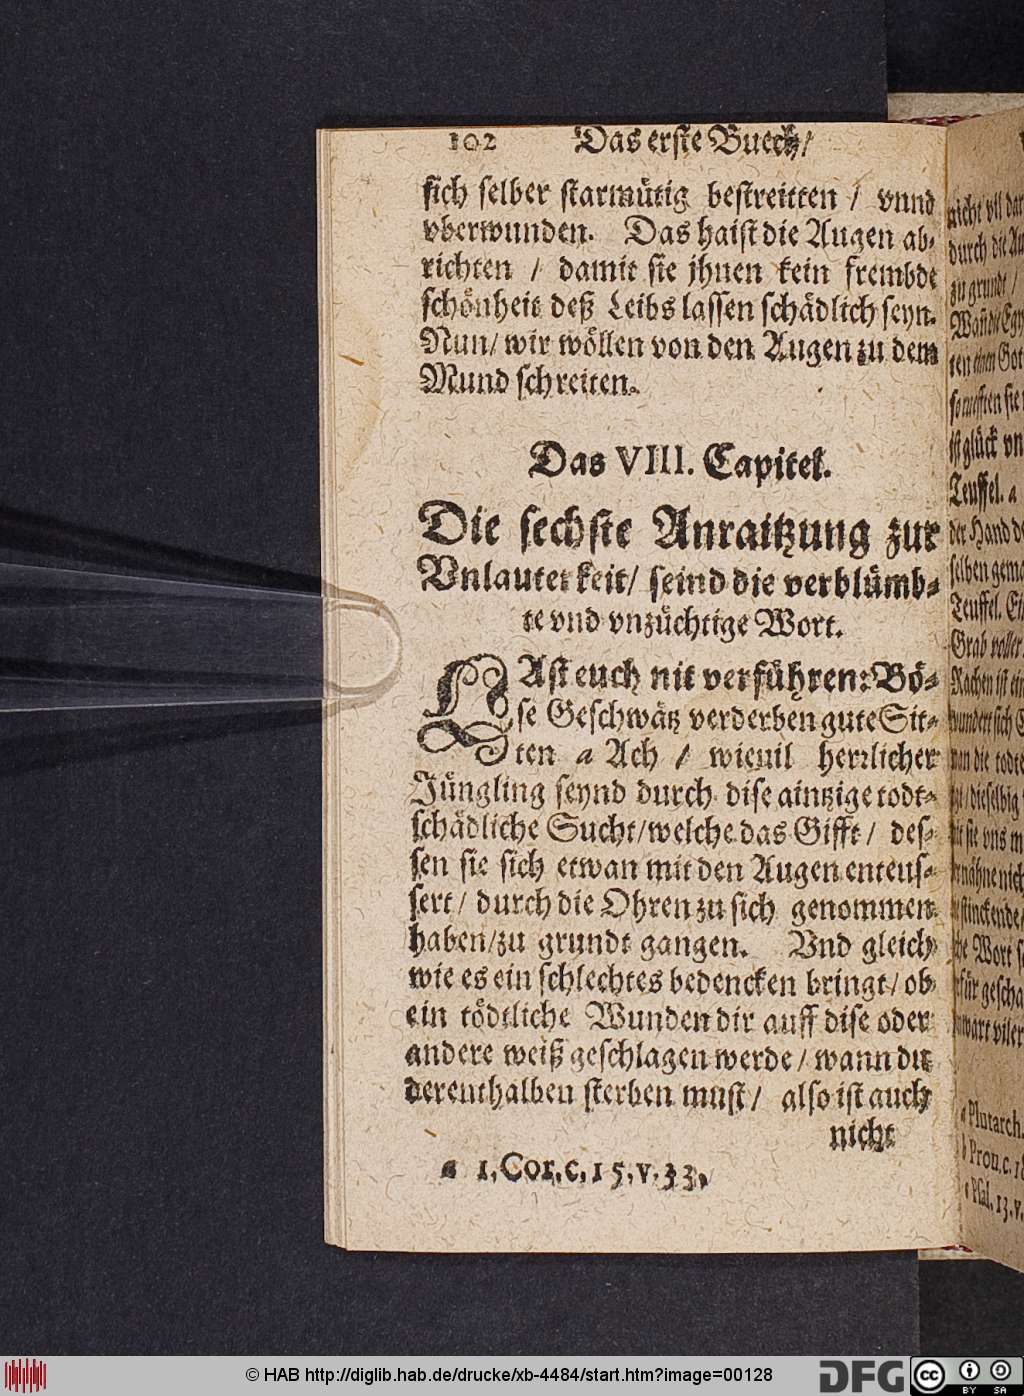 102 Das erste Buech/
sich selber starmütig bestreitten / vnnd
vberwunden. Das haist die Augen ab-
richten / damit sie jhnen kein frembde
schönheit deß Leibs lassen schädlich seyn.
Nun/ wir wöllen von den Augen zu dem
Mund schreiten.
Das VIII. Capitel.
Die sechste Anraitzung zur
Vnlauterkeit/ seind die verblümb-
te vnd vnzüchtige Wort.
LAst euch nit verführen: Bö-
se Geschwätz verderben gute Sit-
ten a Ach / wieuil herrlicher
Jüngling seynd durch dise aintzige todt-
schädliche Sucht/welche das Gifft / des-
sen sie sich etwan mit den Augen enteus-
sert / durch die Ohren zu sich genommen
haben/zu grundt gangen. Vnd gleich
wie es ein schlechtes bedencken bringt/ ob
ein tödtliche Wunden dir auff dise oder
andere weiß geschlagen werde / wann du
derenthalben sterben must / also ist auch
nicht
a 1.Cor.c.15.v.33.
nicht vil dar
durch die Au
zu grundt /
ten einen Got
ist glück vn
Teuffel. a
der Hand de
selben gema
Teuffel. Ei
Grab voller
Rachen ist ein
wundert sich
die todte
dieselbig
sie vns m
stinckende/
Wort
für gescha
a Plutarch.
b Prou.c.1
c Psal.13.v.
© HAB http://diglib.hab.de/drucke/xb-4484/start.htm?image=00128
DFG
cc
BY SA